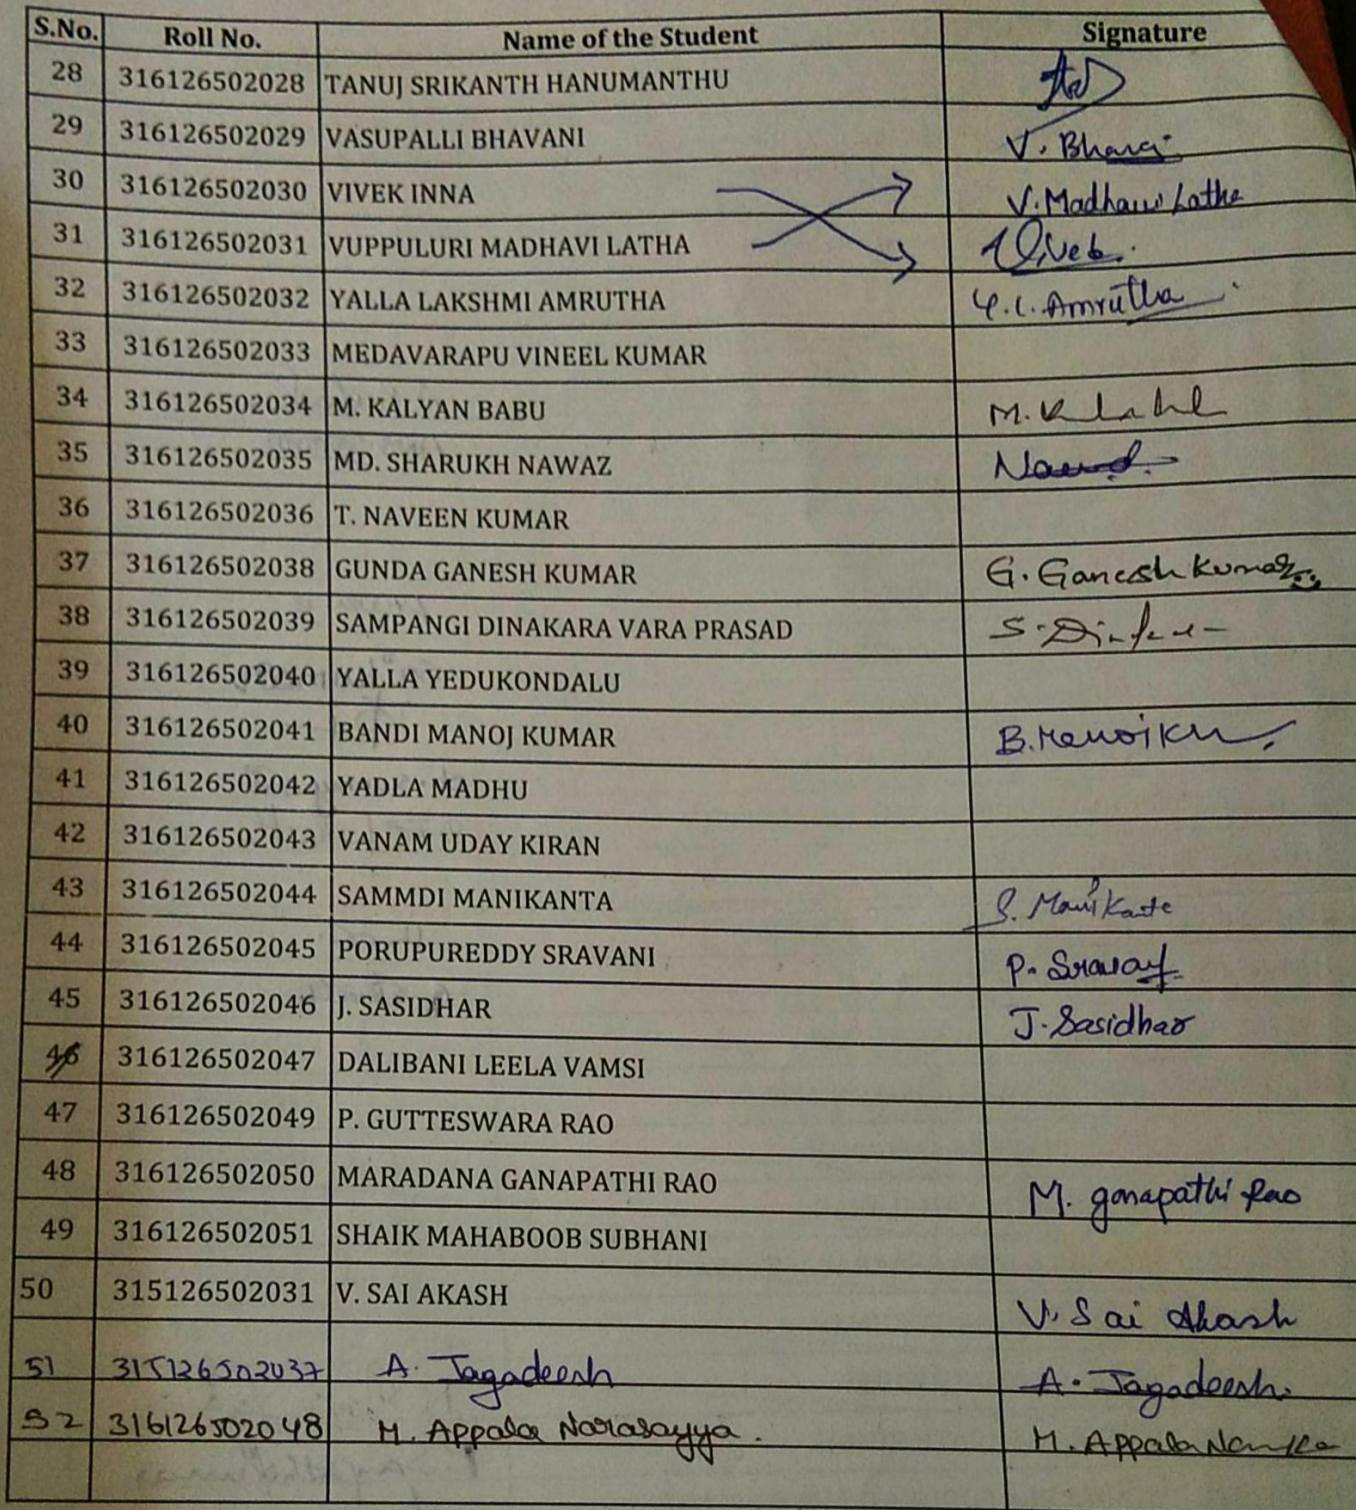 S.No. Roll No. Name of the Student Signature
28 316126502028 TANUJ SRIKANTH HANUMANTHU
29 316126502029 VASUPALLI BHAVANI V.
30 316126502030 VIVEK INNA V. Madhavi Latha
31 316126502031 VUPPULURI MADHAVI LATHA Vivek.
32 316126502032 YALLA LAKSHMI AMRUTHA Y.L. Amrutha
33 316126502033 MEDAVARAPU VINEEL KUMAR
34 316126502034 M. KALYAN BABU M.
35 316126502035 MD. SHARUKH NAWAZ
36 316126502036 T. NAVEEN KUMAR
37 316126502038 GUNDA GANESH KUMAR G. Ganesh Kumar
38 316126502039 SAMPANGI DINAKARA VARA PRASAD S.
39 316126502040 YALLA YEDUKONDALU
40 316126502041 BANDI MANOJ KUMAR B.
41 316126502042 YADLA MADHU
42 316126502043 VANAM UDAY KIRAN
43 316126502044 SAMMDI MANIKANTA S. Manikanta
44 316126502045 PORUPUREDDY SRAVANI P.
45 316126502046 J. SASIDHAR J. Sasidhar
46 316126502047 DALIBANI LEELA VAMSI
47 316126502049 P. GUTTESWARA RAO
48 316126502050 MARADANA GANAPATHI RAO M. ganapathi Rao
49 316126502051 SHAIK MAHABOOB SUBHANI
50 315126502031 V. SAI AKASH V. Sai Akash
51 315126502037 A. Jagadeesh A. Jagadeesh.
52 316126502048 M. Appala Narasayya. M. Appala